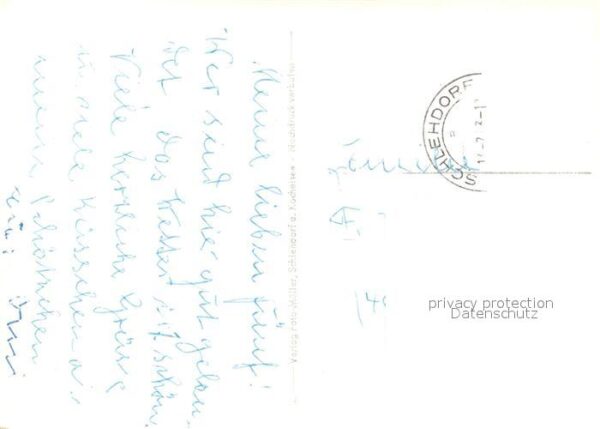 Meine lieben fünf!
Wir sind hier gut gelan-
det das Wetter ist schön.
Viele herzliche Grüsse
u. viele Küsschen a.
meine
Verlag Foto-Müller, Schlehdorf a. Kochelsee - Nachdruck verboten
SCHLEHDORF
Familie
A.
privacy protection
Datenschutz